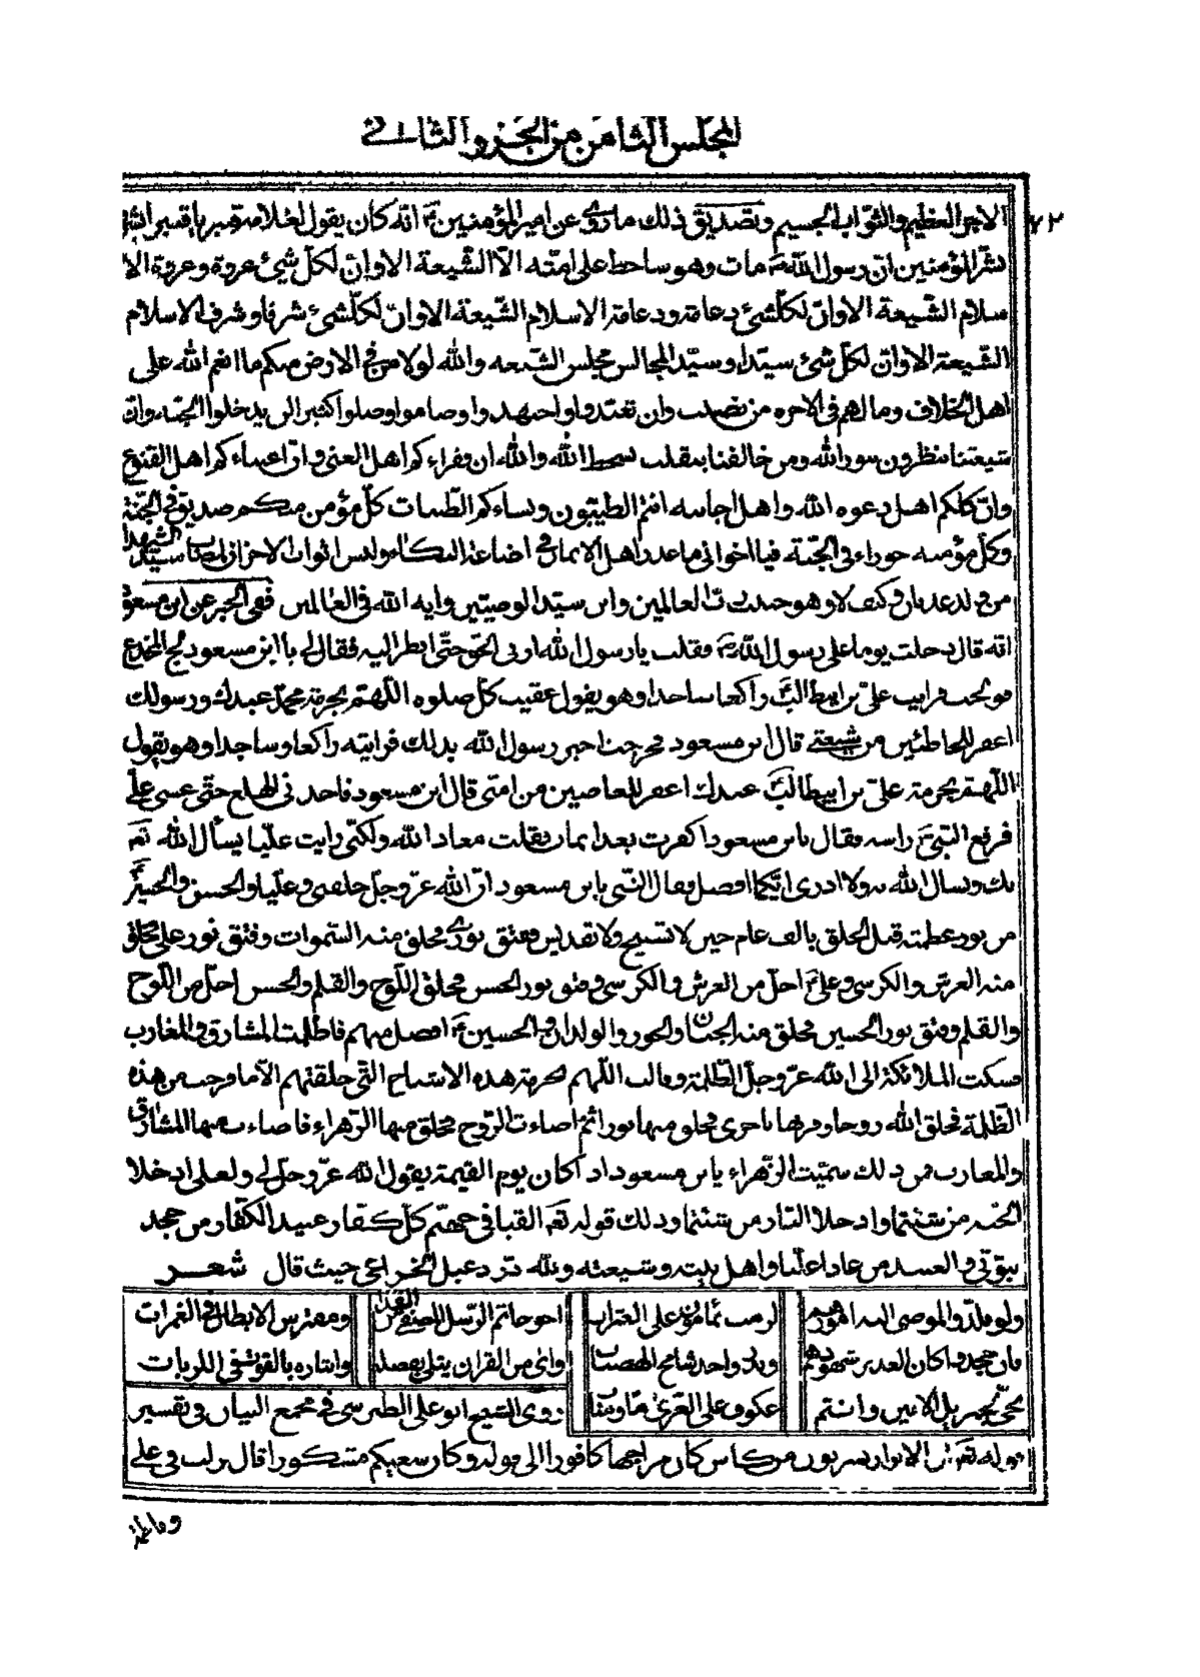 المجلس الثامن من الجزو الثاني
٧٣
الاجر العظيم والثواب الجسيم وتصديق ذلك ما روى عن امير المؤمنين انه كان يقول لغلامه قنبر يا قنبر ابشر
بشر المؤمنين ان رسول الله مات وهو ساخط على امته الا الشيعة الا وان لكل شئ عروة وعروة الا
سلام الشيعة الا وان لكل شئ دعامة ودعامة الاسلام الشيعة الا وان لكل شئ شرفا وشرف الاسلام
الشيعة الا وان لكل شئ سيدا وسيد المجالس مجلس الشيعه والله لولا من في الارض منكم ما انعم الله على
اهل الخلاف وما لهم في الاخره من نصيب وان تعبدوا واجتهدوا وصاموا وصلوا كثيرا لن يدخلوا الجنه وان
شيعتنا ينظرون بنور الله ومن خالفنا يتقلب بسخط الله والله ان فقراءكم اهل الغنى وان اغنياءكم اهل القنوع
وان كلكم اهل دعوه الله واهل اجابته انتم الطيبون ونساءكم الطيبات كل مؤمن منكم صديق في الجنة
وكل مؤمنه حوراء في الجنة فيا اخواني ما عذر اهل الايمان في اضاعة البكاء ولبس اثواب الاحزان لمصاب سيد الشهداء
من ولد عدنان وكيف لا وهو حبيب رب العالمين وابن سيد الوصيين واية الله في العالمين ففي الخبر عن ابن مسعود
انه قال دخلت يوما على رسول الله فقلت يا رسول الله ارنى الحق حتى انظر اليه فقال لي يا ابن مسعود لج المخدع
فولجت فرايت علي بن ابيطالب راكعا ساجدا وهو يقول عقيب كل صلوه اللهم بحرمة محمد عبدك ورسولك
اغفر للخاطئين من شيعتي قال ابن مسعود فخرجت اخبر رسول الله بذلك فرايته راكعا وساجدا وهو يقول
اللهم بحرمة علي بن ابيطالب عبدك اغفر للعاصين من امتى قال ابن مسعود فاخذني الهلع حتى غشى علي
فرفع النبي راسه وقال يا ابن مسعود اكفرت بعد ايمان فقلت معاذ الله ولكني رايت عليا يسأل الله تعه
بك وتسال الله به ولا ادرى ايكما افضل فقال النبي يا بن مسعود ان الله عز وجل خلقنى وعليا والحسن والحسين
من نور عظمته قبل الخلق بالف عام حين لا تسبيح ولا تقديس ففتق نورى فخلق منه السموات وفتق نور علي فخلق
منه العرش والكرسي وعلي اجل من العرش والكرسي وفتق نور الحسن فخلق اللوح والقلم والحسن اجل من اللوح
والقلم وفتق نور الحسين فخلق منه الجنان والحور والولدان والحسين افضل منهم فاظلمت المشارق والمغارب
فسكت الملائكة الى الله عز وجل الظلمة وقالت اللهم بحرمة هذه الاشباح التي خلقتهم الا ما فرجت من هذه
الظلمة فخلق الله روحا وقرنها باخرى فخلق منها نورا ثم اضاءت الروح فخلق منها الزهراء فاضاءت منها المشارق
والمغارب فمن ذلك سميت الزهراء يا بن مسعود اذا كان يوم القيمة يقول الله عز وجل لي ولعلي ادخلا
الجنه من شئتما وادخلا النار من شئتما وذلك قوله تعه القيا في جهنم كل كفار عنيد الكفار من جحد
نبوتي والعنيد من عاند عليا واهل بيته وشيعته ولله در دعبل الخزاعي حيث قال شعر
ولو قلدوا الموصى اليه امورهم لزمت بمامون على العثرات اخو خاتم الرسل المصفى من القذى ومفترس الابطال في الغمرات
فان جحدوا كان الغدير شهودهم وبدر واحد شامخ الهضبات واى من القران يتلى بفضله وايثاره بالقوت في اللزبات
نجي لجبريل الامين وانتم عكوف على العزى معا ومناة روى الشيخ ابو علي الطبرسي في مجمع البيان وتفسير
قوله تعه ان الابرار يشربون من كاس كان مزاجها كافورا الى قوله وكان سعيكم مشكورا قال نزلت في علي
وفاطمة